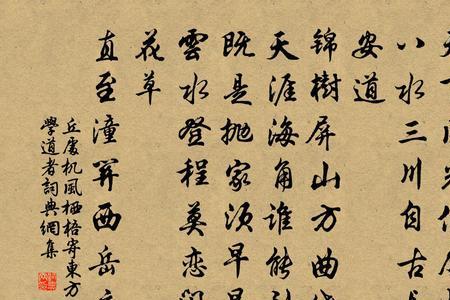 八水三川自古
安道
錦樹屏山方曲
天涯海角誰能到
既是拋家須早早
雲水登程莫戀
花草
直至潼關西岳
丘處机風栖梧寄東方
學道者詞典網集